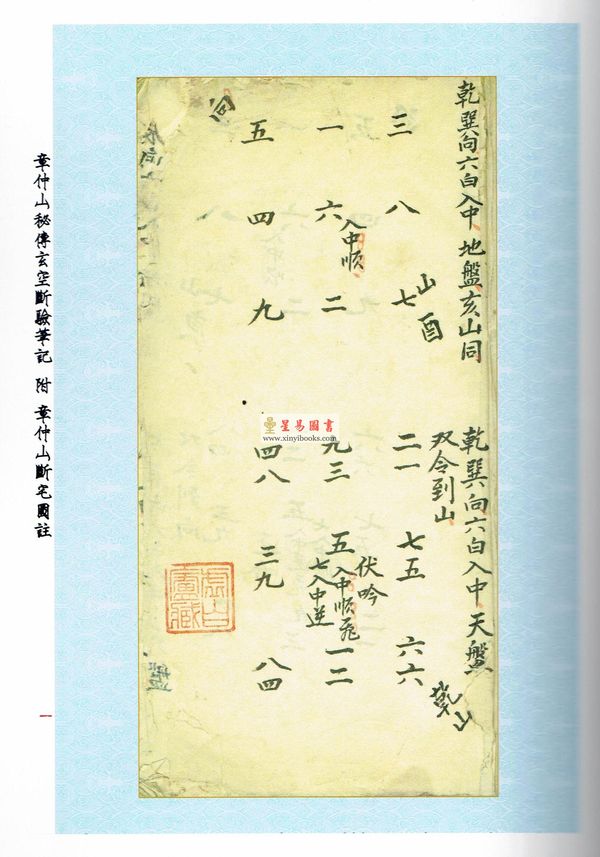 乾巽向六白入中 地盤亥山同
三 一 五 向
八 六 四
入中順
七 二 九
山 酉
乾巽向六白入中天盤
双令到山
二一 九三 四八
七五 五七 三九
入中順飛
入中逆
伏吟
六六 一二 八四
乾山
星易圖書
www.xinyibooks.com
虞山
廬藏
章仲山秘傳玄空斷驗筆記 附 章仲山斷宅圖註
一